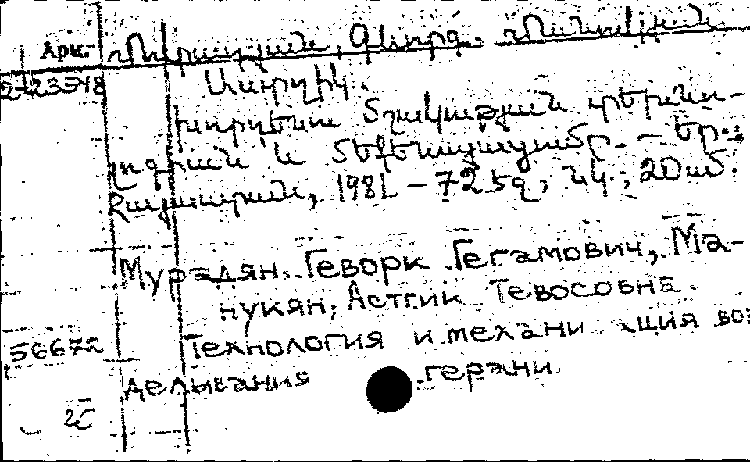 Арм. Մուրադյան, Գևորգ. Մանուկյան
2-23948 Աստղիկ.
խորդենու մշակության տեխնո-
լոգիան և մեքենայացումը. — Եր.:
Հայաստան, 1981 — 72 էջ, նկ., 20 սմ.
Мурадян, Геворк Гегамович, Ма-
нукян, Астгик Тевосовна.
56672 Технология и механи ция воз
делывания герани